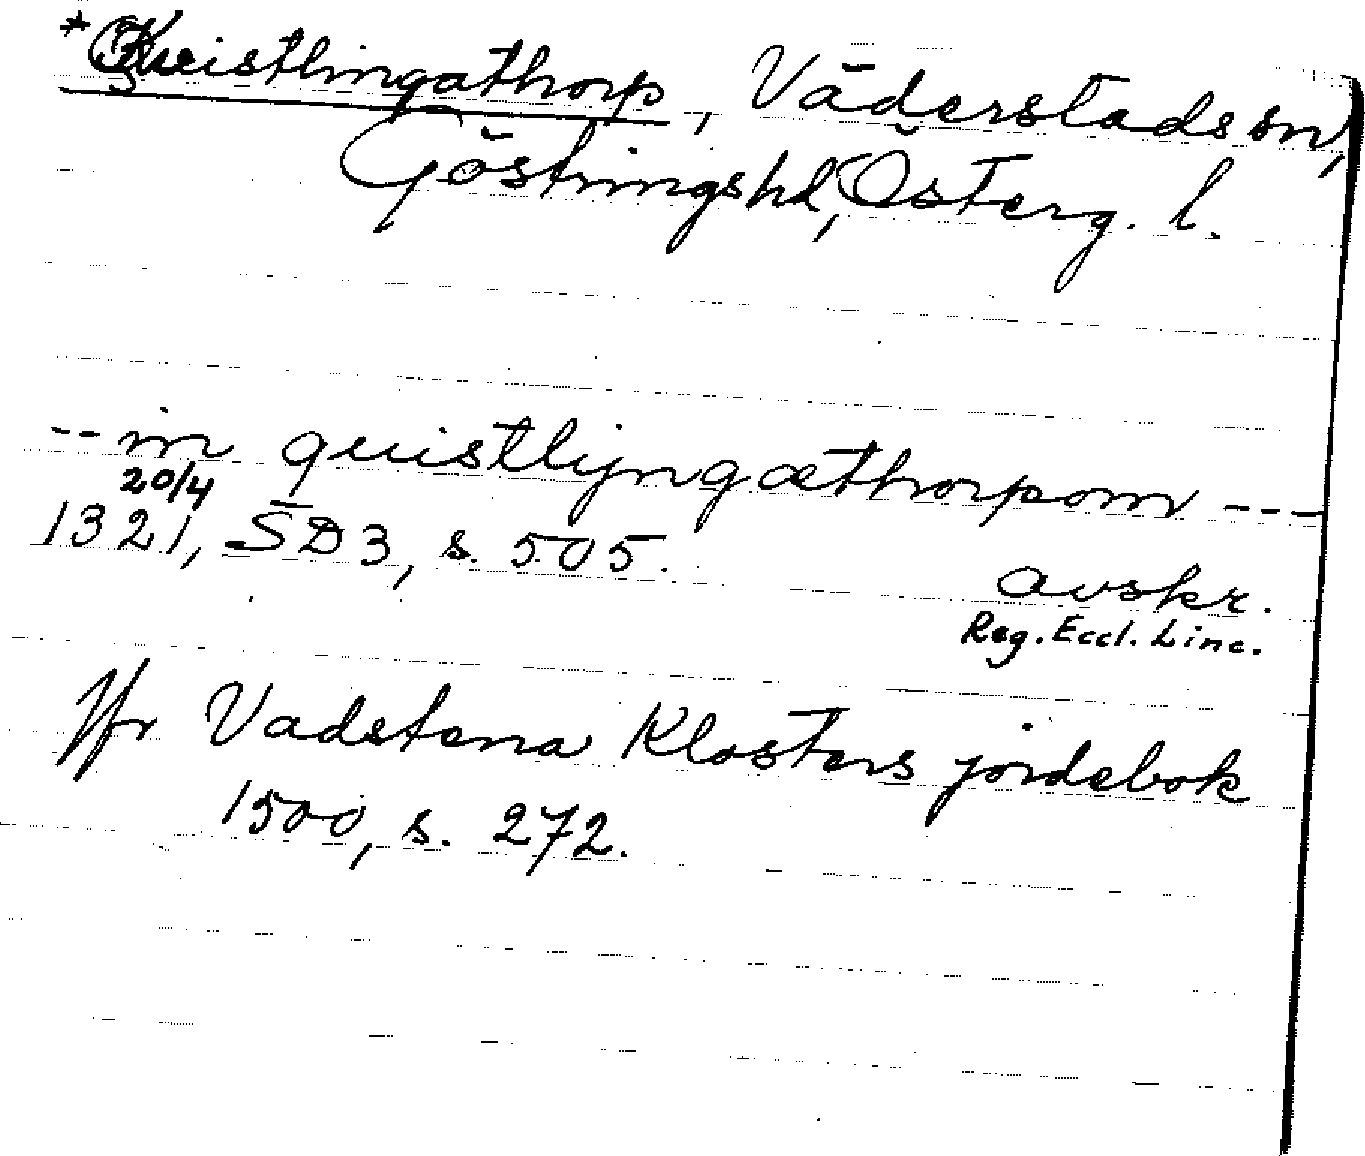 *Kvistlingathorp, Väderstads sn,
Göstringshd, Österg. l.
-- in quistlyngæthorpom ---
20/4
1321, SD3, s. 505.
avskr.
Reg. Eccl. Linc.
Jfr Vadstena Klosters jordebok
1500, s. 272.